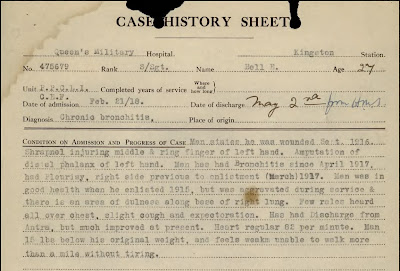 CASE HISTORY SHEET
Queen's Military Hospital. Kingston Station.
No. 475679 Rank S/Sgt. Name Bell E. Age 27
Unit P.P.C.L.I. Completed years of service Where and how long
C.E.F.
Date of admission Feb. 21/18. Date of discharge May 2nd from
Diagnosis Chronic bronchitis, Place of origin
CONDITION ON ADMISSION AND PROGRESS OF CASE Man states he was wounded Sept. 1916.
Shrapnel injuring middle & ring finger of left hand. Amputation of
distal phalanx of left hand. Man has had Bronchitis since April 1917,
had Pleurisy, right side previous to enlistment (March) 1917. Man was in
good health when he enlisted 1915, but was aggravated during service &
there is an area of dulness along base of right lung. Few rales heard
all over chest, slight cough and expectoration. Has had Discharge from
Antra, but much improved at present. Heart regular 82 per minute. Man
15 lbs below his original weight, and feels weak: unable to walk more
than a mile without tiring.